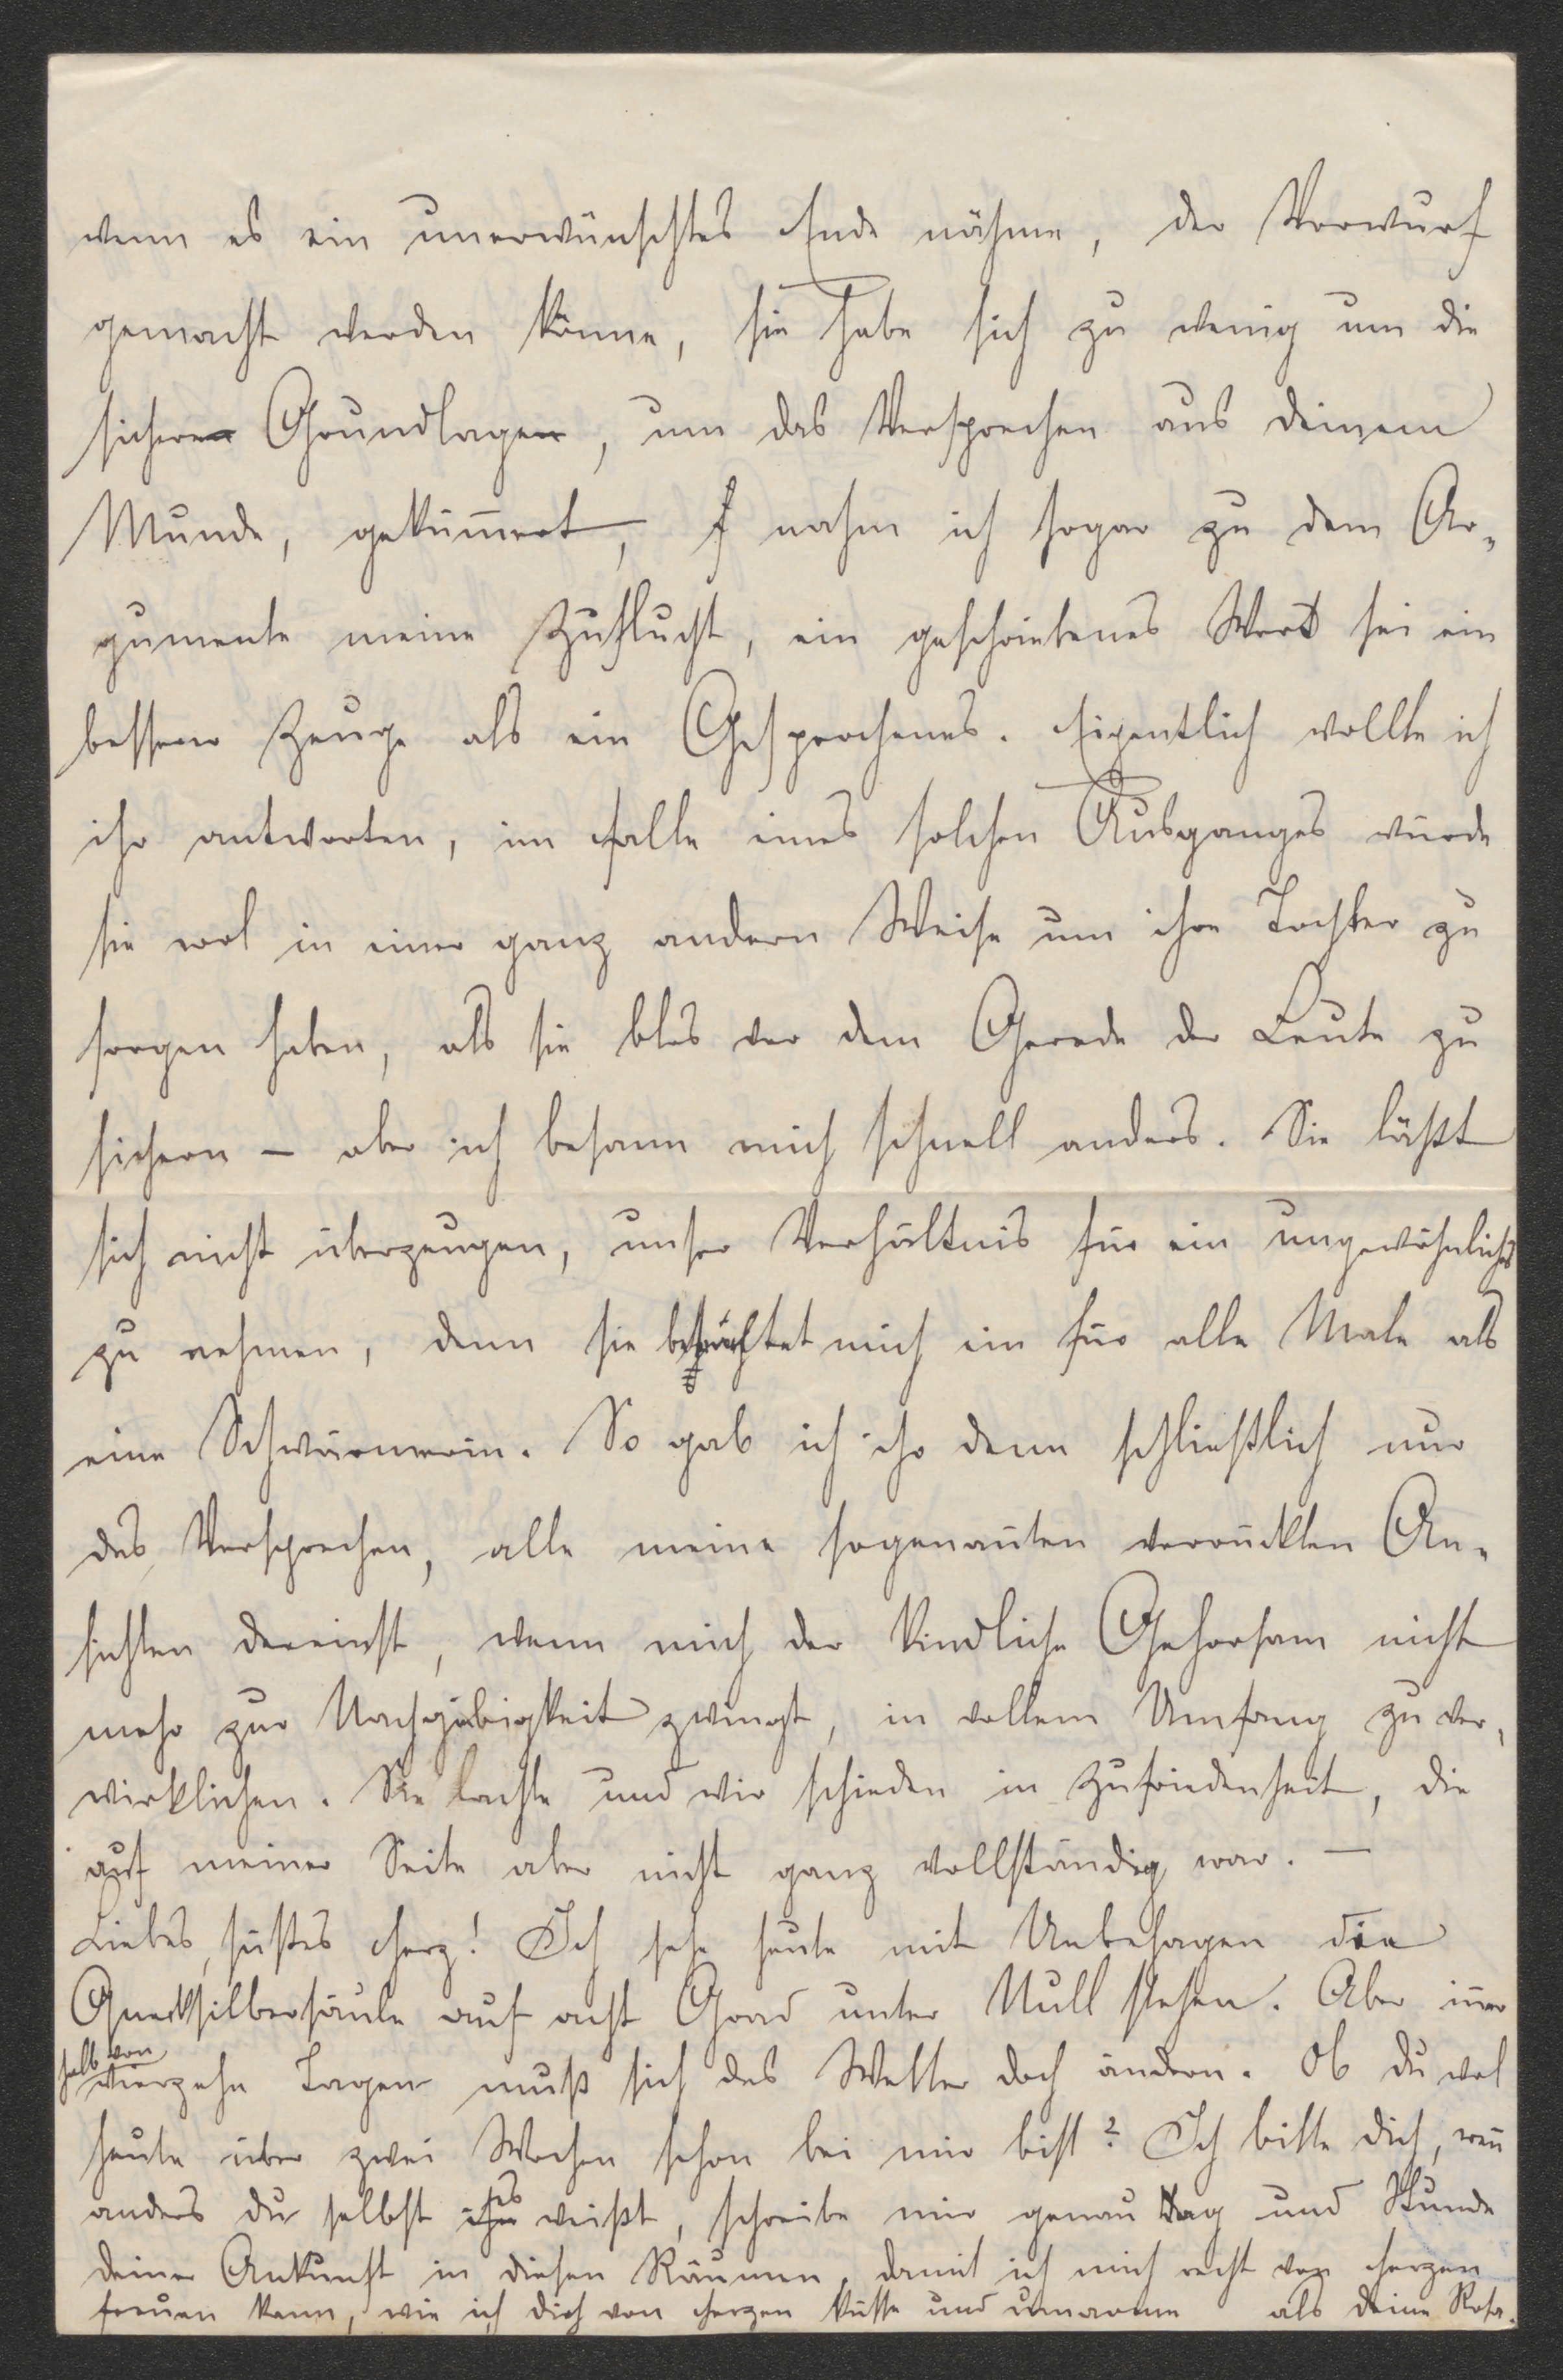 wenn es ein unerwünschtes Ende nähme, der Vorwurf
gemacht werden könne, sie habe sich zu wenig um die
sichere Grundlage, um das Versprechen aus deinem
Munde, gekümert, nahm ich sogar zu dem Ar-
gumente meine Zuflucht, ein geschriebenes Wort sei ein
besserer Zeuge als ein Gesprochenes. Eigentlich wollte ich
ihr antworten, im Falle eines solchen Ausganges würde
sie wol in einer ganz andern Weise um ihre Tochter zu
sorgen haben, als sie blos vor dem Gerede der Leute zu
sichern – aber ich besann mich schnell anders. Sie läßt
sich nicht überzeugen, unser Verhältnis für ein ungewöhnliches
zu nehmen, denn sie mich ein für alle Male als
eine Schwärmerin. So gab ich ihr denn schließlich nur
das Versprechen, alle meine sogenañten verrückten An-
sichten dereinst, wenn mich der kindliche Gehorsam nicht
mehr zur Nachgibigkeit zwingt, in vollem Umfang zu ver-
wirklichen. Sie lachte und wir schieden in Zufriedenheit, die
auf meiner Seite aber nicht ganz vollständig war. –
Liebes, süßes Herz! Ich sehe heute mit Unbehagen die
Quecksilbersäule auf acht Grad unter Null stehen. Aber iñer
halb von
vierzehn Tagen muß sich das Wetter doch ändern. Ob du wol
heute über zwei Wochen schon bei mir bist? Ich bitte dich, weñ
anders du selbst es weißt, schreibe mir genau Tag und Stunde
deiner Ankunft in diesen Räumen, damit ich mich recht von Herzen
freuen kann, wie ich dich von Herzen küsse und umarme als deine Rosa.